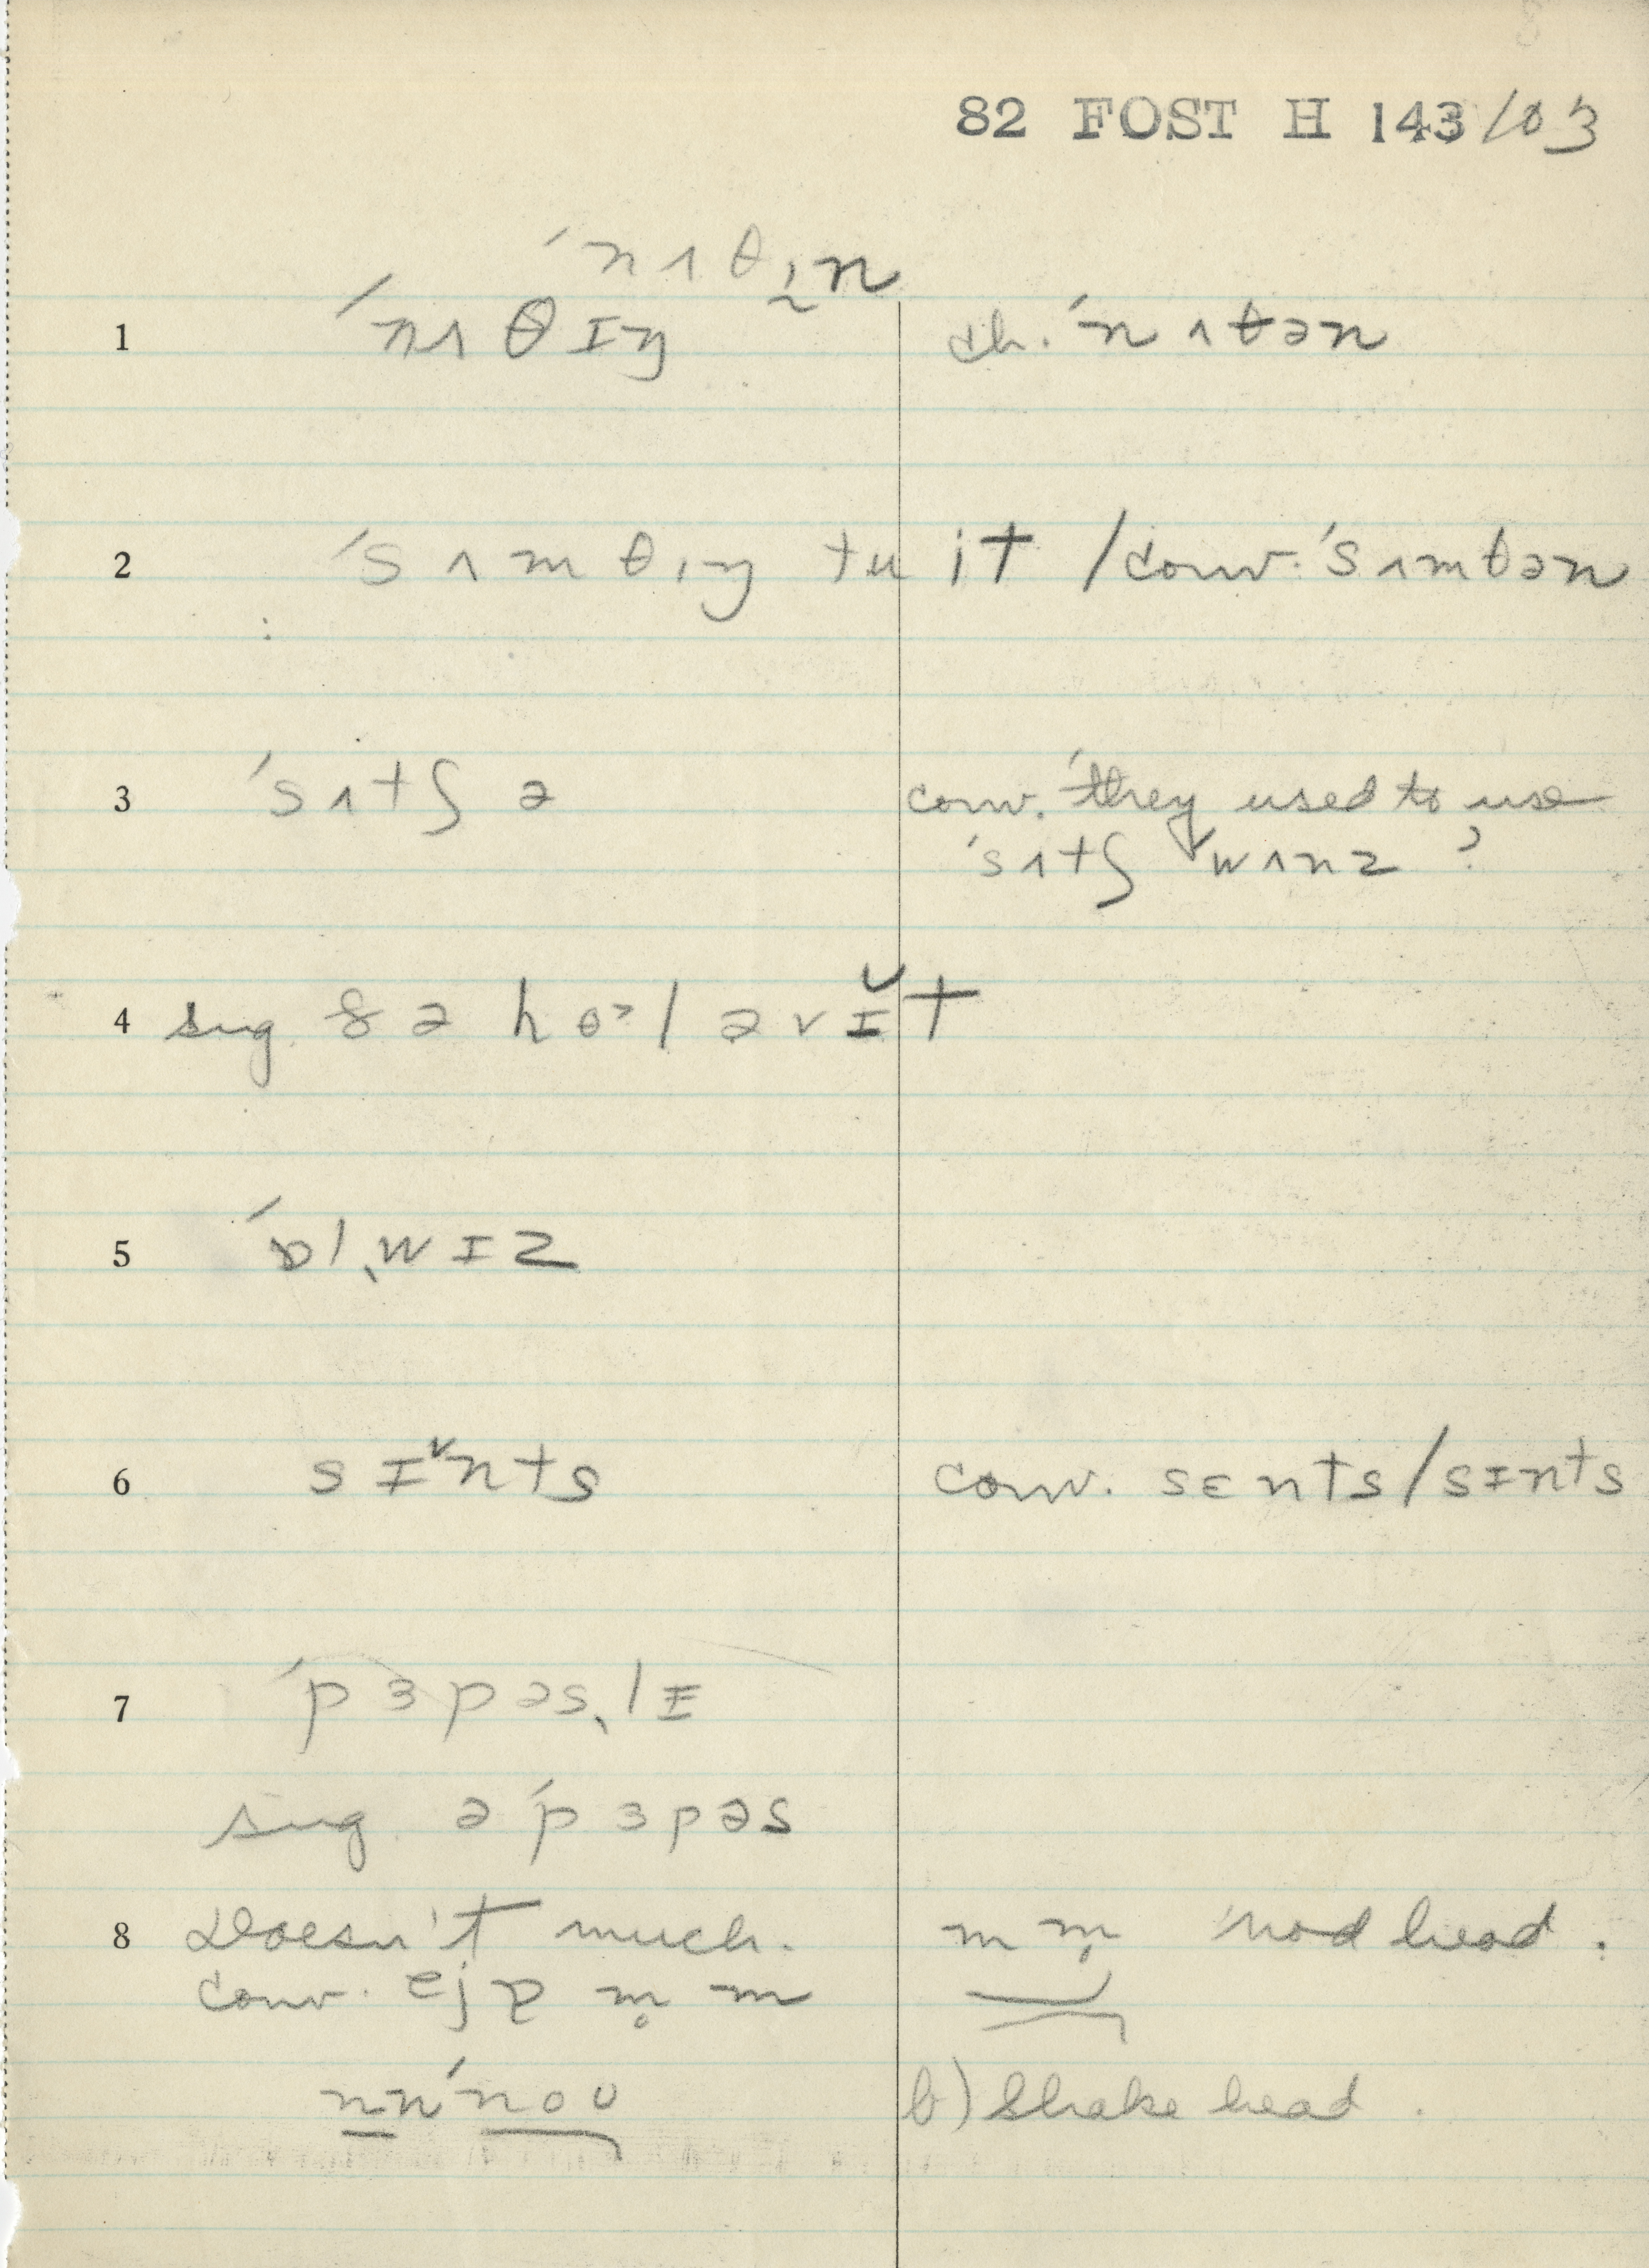 82 FOST H 143/03
ˈnʌθɪ̰n
1 ˈnʌθɪŋ ch. ˈnʌθən
2 ˈsʌmθɪŋ tu it / conv. ˈsʌmθən
3 ˈsʌtʃ ə conv. they used to use
ˈsʌtʃ ˈwʌnz ?
4 sug. ðə hoᵊl əv ɪ̆t
5 ˈɒlˌwɪz
6 sɪ̌nts conv. sɛnts / sɪnts
7 ˈpɜpəsˌlɪ
sug. ə ˈpɜpəs
8 Doesn't much. m m̩ nod head.
conv. m̥ m
nnˈnoʊ b) Shake head.